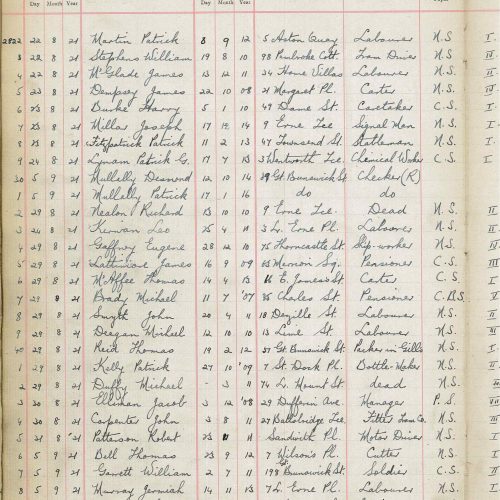 Day Month Year Day Month Year
2822 22 8 21 Martin Patrick 8 9 12 5 Aston Quay Labourer N.S. I
3 22 8 21 Stephens William 19 8 10 98 Pembroke Cott. Tram Driver N.S.
4 22 8 21 McGlade James 13 12 11 34 Home Villas Labourer N.S.
5 23 8 21 Dempsey James 22 10 08 21 Margaret Pl. Carter N.S.
6 23 8 21 Burke Harry 5 1 10 49 Dame St. Caretaker C.S. I
7 23 8 21 Millar Joseph 17 12 14 9 Erne Tce Signal Man N.S. I
8 23 8 21 Fitzpatrick Patrick 11 2 13 47 Townsend St. Stableman N.S. I
9 24 8 21 Lynam Patrick G. 17 7 13 3 Wentworth Tce. Chemical Worker C.S. I
30 5 9 21 Mullally Desmond 12 10 14 39 Gt. Brunswick St. Checker (R)
1 5 9 21 Mullally Patrick 17 1 16 do do
2 29 8 21 Nealon Richard 13 10 10 9 Erne Tce. Dead N.S.
3 24 8 21 Kirwan Leo 25 4 11 3 Lr. Erne Pl. Labourer N.S.
4 29 8 21 Gaffney Eugene 28 12 10 75 Thorncastle St. Ship-worker N.S.
5 29 8 21 Lattimore James 16 9 09 63 Merrion Sq. Pensioner C.S. III
6 29 8 21 McAffee Thomas 14 4 13 16 E. James's St. Carter C.S. I
7 29 8 21 Brady Michael 11 7 '07 35 Charles St. Pensioner C.B.S.
8 29 8 21 Smyth John 20 4 11 18 Denzille St. Labourer N.S.
9 29 8 21 Deegan Michael 12 10 10 13 Lime St. Labourer N.S.
40 29 8 21 Reid Thomas 19 2 12 37 Gt. Brunswick St. Packer in Gills N.S. I
1 29 8 21 Kelly Patrick 27 10 '09 7 St. Dock Pl. Bottle-Maker N.S.
2 29 8 21 Duffy Michael - 3 11 74 Lr. Mount St. dead N.S.
3 30 8 21 Elliman Jacob 3 12 '08 29 Dufferin Ave. Manager P.S.
4 30 8 21 Carpenter John 3 8 11 27 Ballsbridge Tce. Fitter Tram Co. N.S.
5 31 8 21 Patterson Robert 23 11 11 Sandwith Pl. Motor Driver N.S. I
6 5 9 21 Bell Thomas 23 9 12 7 Wilson's Pl. Cutter N.S. I
7 5 9 21 Garrett William 2 7 11 198 Gt. Brunswick St. Soldier C.S. I
8 5 9 21 Murray Jeremiah 14 11 13 7 Lr. Erne Pl. Labourer N.S. I